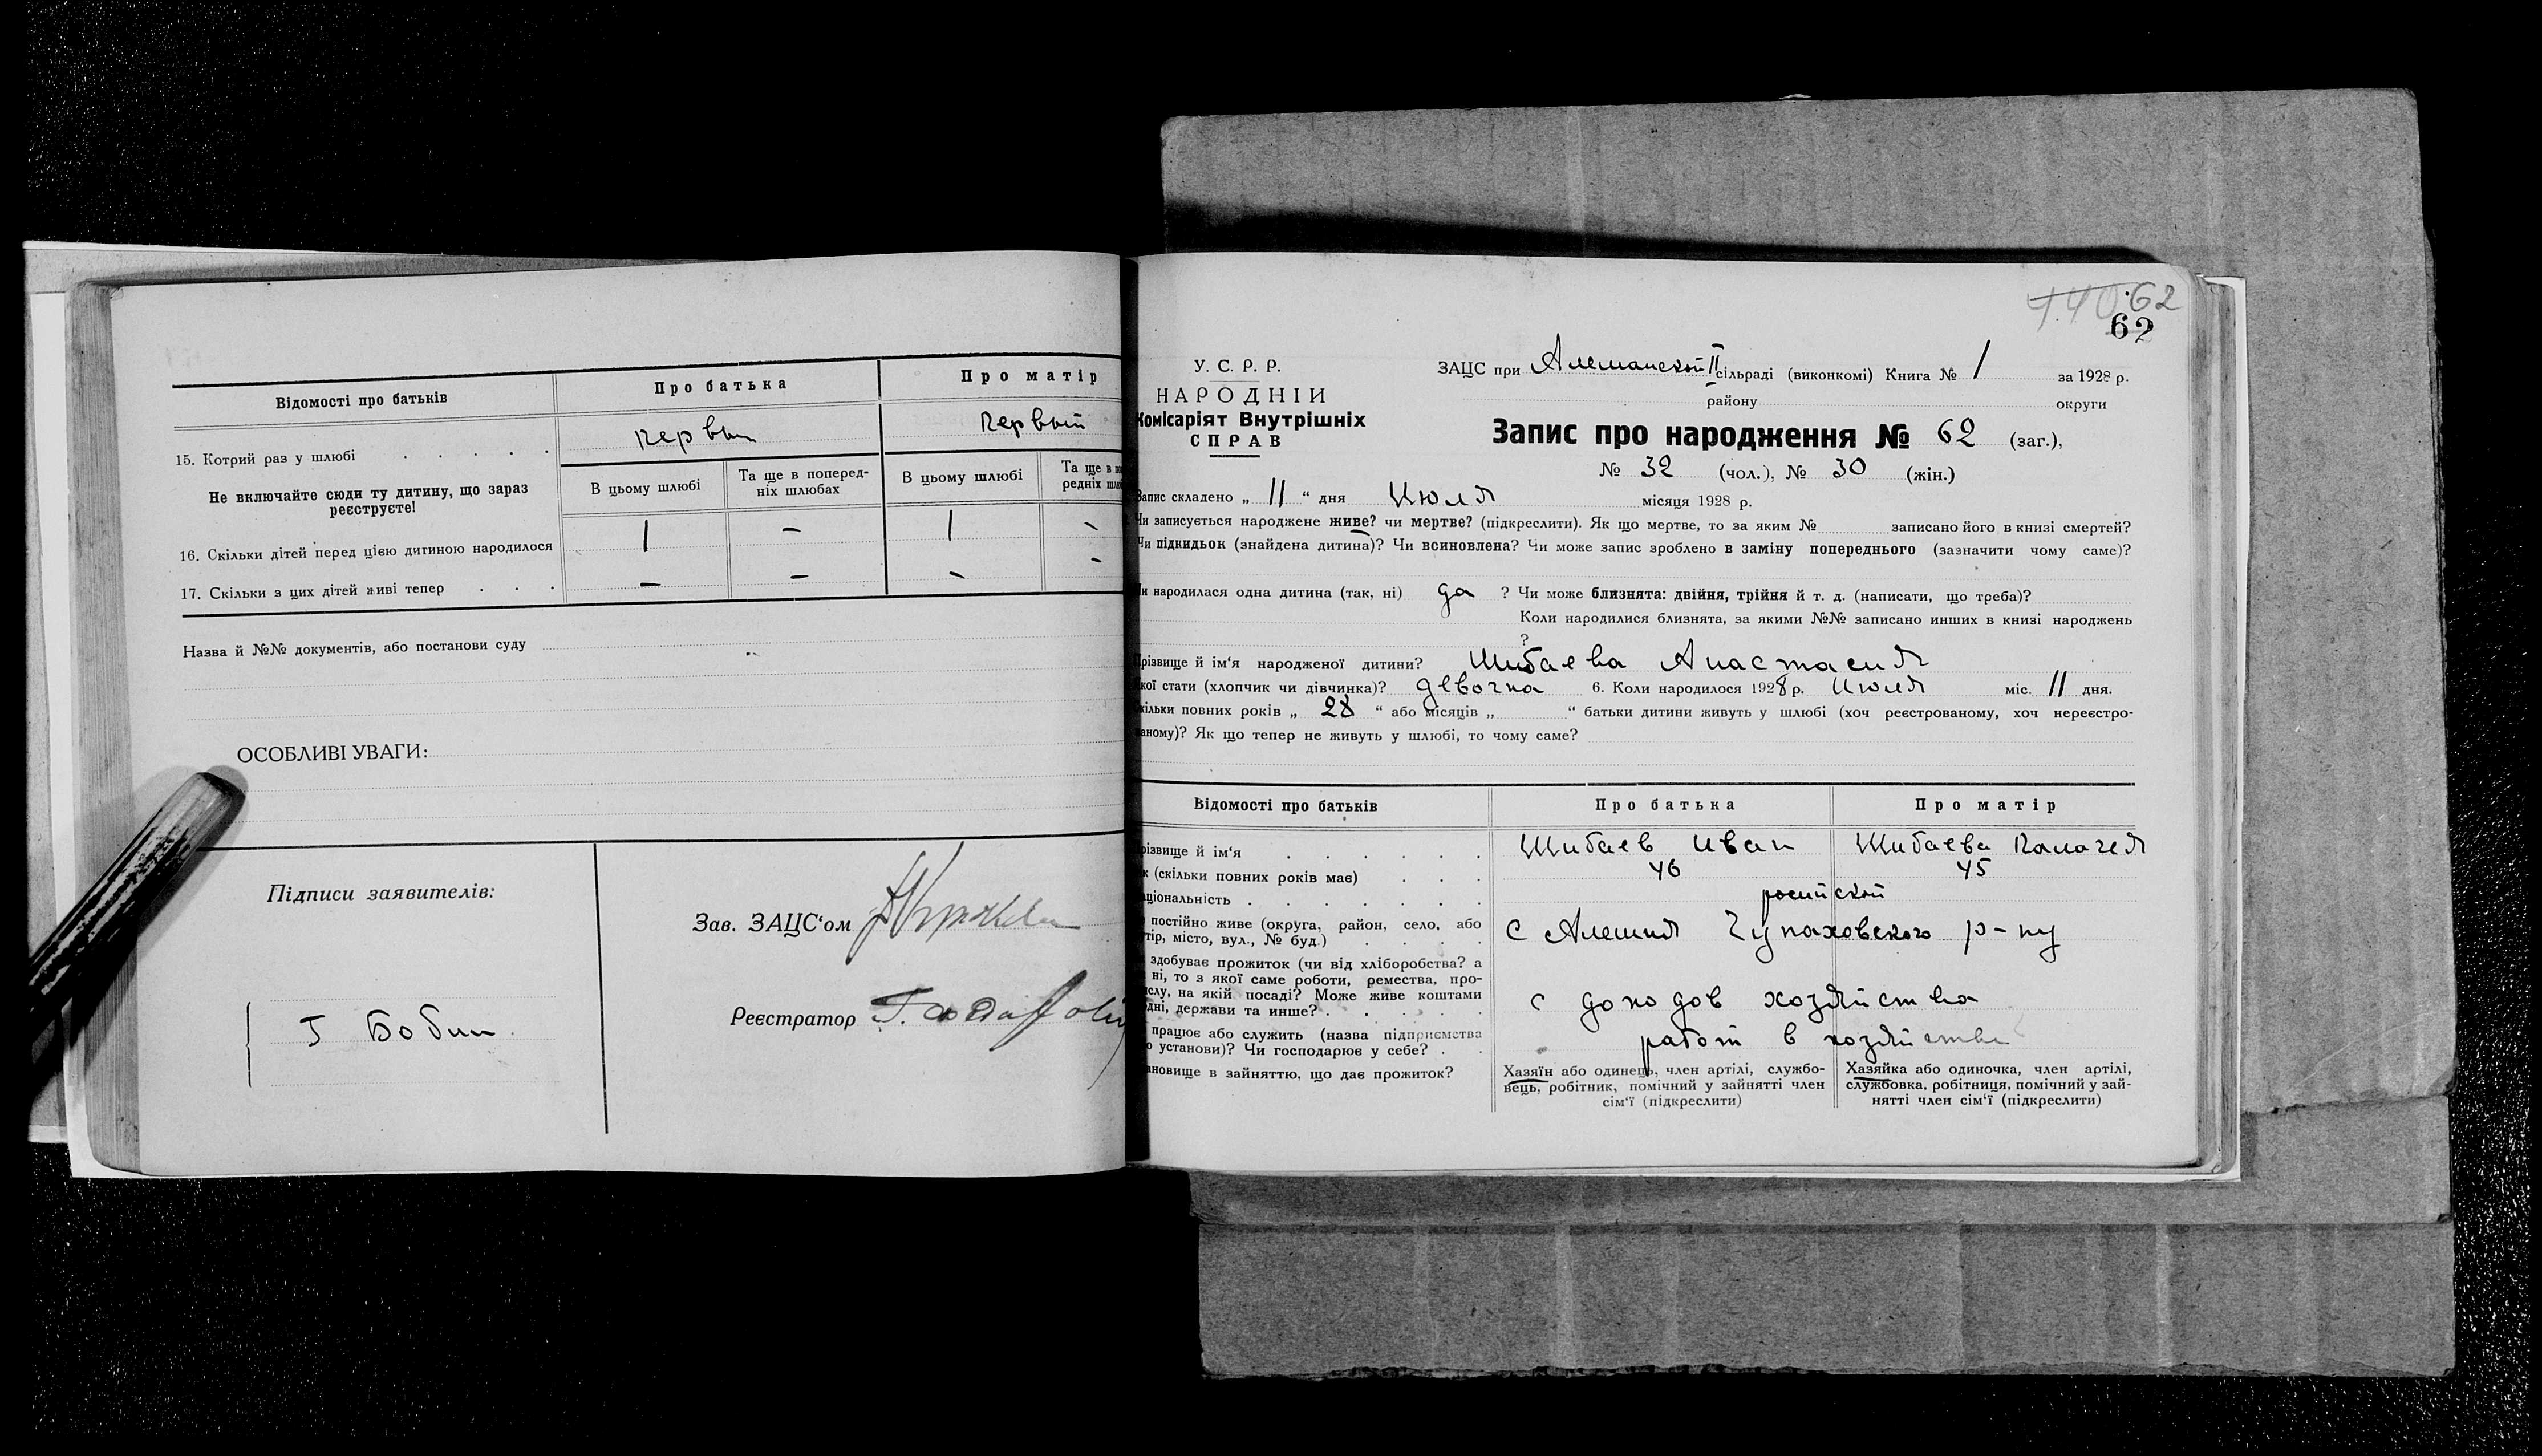 Відомості про батьків
Про батька
Про матір
15. Котрий раз у шлюбі . . . . .
первый
первый
Не включайте сюди ту дитину, що зараз
реєструєте!
В цьому шлюбі
Та ще в поперед-
ніх шлюбах
В цьому шлюбі
Та ще в
редніх
16. Скільки дітей перед цією дитиною народилося
1 - 1 -
17. Скільки з цих дітей живі тепер . . .
- - - -
Назва й №№ документів, або постанови суду
ОСОБЛИВІ УВАГИ:
Підписи заявителів:
Г Бобин
Зав. ЗАЦС'ом
Реєстратор
62
62
У. С. Р. Р.
НАРОДНІЙ
Комісаріят Внутрішніх
СПРАВ
ЗАЦС при II сільраді (виконкомі) Книга № 1 за 1928 р.
району округи
Запис про народження № 62 (заг.),
№ 32 (чол.), № 30 (жін.)
Запис складено „ 11 “ дня Июля місяця 1928 р.
Чи записується народжене живе? чи мертве? (підкреслити). Як що мертве, то за яким № записано його в книзі смертей?
Чи підкидьок (знайдена дитина)? Чи всиновлена? Чи може запис зроблено в заміну попереднього (зазначити чому саме)?
и народилася одна дитина (так, ні) да ? Чи може близнята: двійня, трійня й т. д. (написати, що треба)?
Коли народилися близнята, за якими №№ записано инших в книзі народжень
?
різвище й ім'я народженої дитини? Шибаева Анастасия
кої стати (хлопчик чи дівчинка)? девочка 6. Коли народилося 1928 р. Июля міс. 11 дня.
кільки повних років „ 28 “ або місяців „ “ батьки дитини живуть у шлюбі (хоч реєстрованому, хоч нереєстро-
аному)? Як що тепер не живуть у шлюбі, то чому саме?
Відомості про батьків
Про батька
Про матір
різвище й ім'я . . . . . .
Шибаев Иван
Шибаева
к (скільки повних років має) . . .
46
45
аціональність . . . . . . .
росийской
постійно живе (округа, район, село, або
тір, місто, вул., № буд.) . . . .
с Алешня Чупаховского р-ну
здобуває прожиток (чи від хліборобства? а
ні, то з якої саме роботи, ремества, про-
слу, на якій посаді? Може живе коштами
дні, держави та инше? . . . . .
с доходов хозяйства
працює або служить (назва підприємства
о установи)? Чи господарює у себе? . .
работ в хозяйстве
ановище в зайняттю, що дає прожиток?
Хазяїн або одинець, член артілі, службо-
вець, робітник, помічний у зайнятті член
сім'ї (підкреслити)
Хазяйка або одиночка, член артілі,
службовка, робітниця, помічний у зай-
нятті член сім'ї (підкреслити)